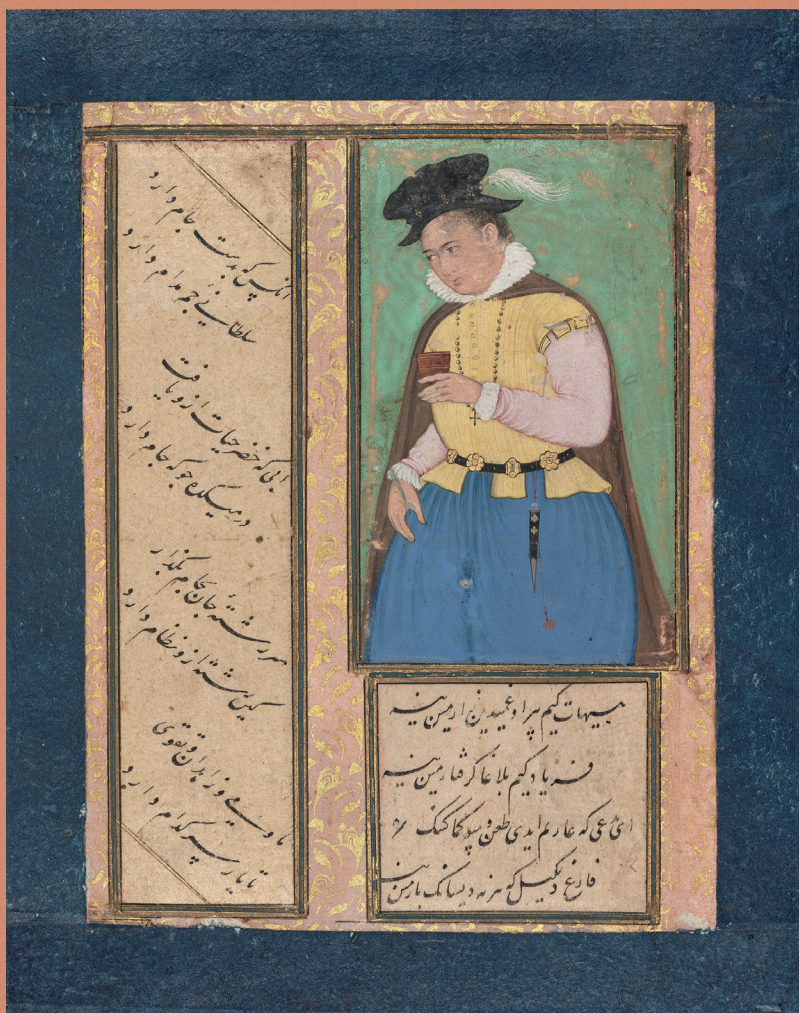 آنکس که بدست جام دارد
سلطانی جم مدام دارد
آبی که خضر حیات ازو یافت
در میکده جو که جام دارد
سررشتهٔ جان بجام بگذار
کین رشته ازو نظام دارد
ما و می و زاهدان و تقوی
تا یار سر کدام دارد
هیهات کیم غمیدین زار مین ینه
فریاد کیم بلاغا گرفتار مین ینه
ای که ایدی طعن و
فارغ دیکیل که هر نه دیسانک بار مین ینه